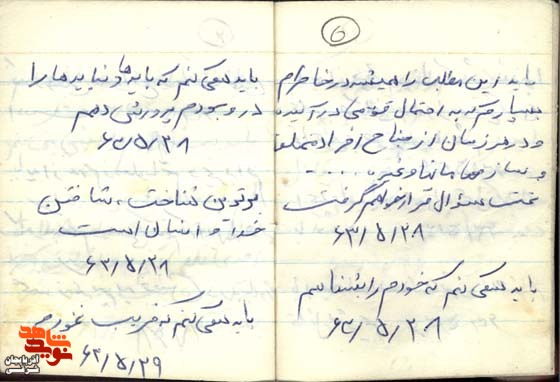 6
باید این مطلب را همیشه در خاطرم
بسپارم که به احتمال قوی در آینده
و در هر زمان از جناح افراد مختلف
و سازمانها و غیره ....
تحت سؤال قرار خواهم گرفت
۶۳/۵/۲۸
باید سعی کنم که خودم را بشناسم
۶۳/۵/۲۸
باید سعی کنم که بایدها و نبایدها را
در وجودم پرورش دهم
۶۳/۵/۲۸
موثرترین شناخت، شناختن
خدا و انسان است
۶۳/۵/۲۸
باید سعی کنم که فریب نخورم
۶۳/۵/۲۹
نوید شاهد
آذربایجان شرقی